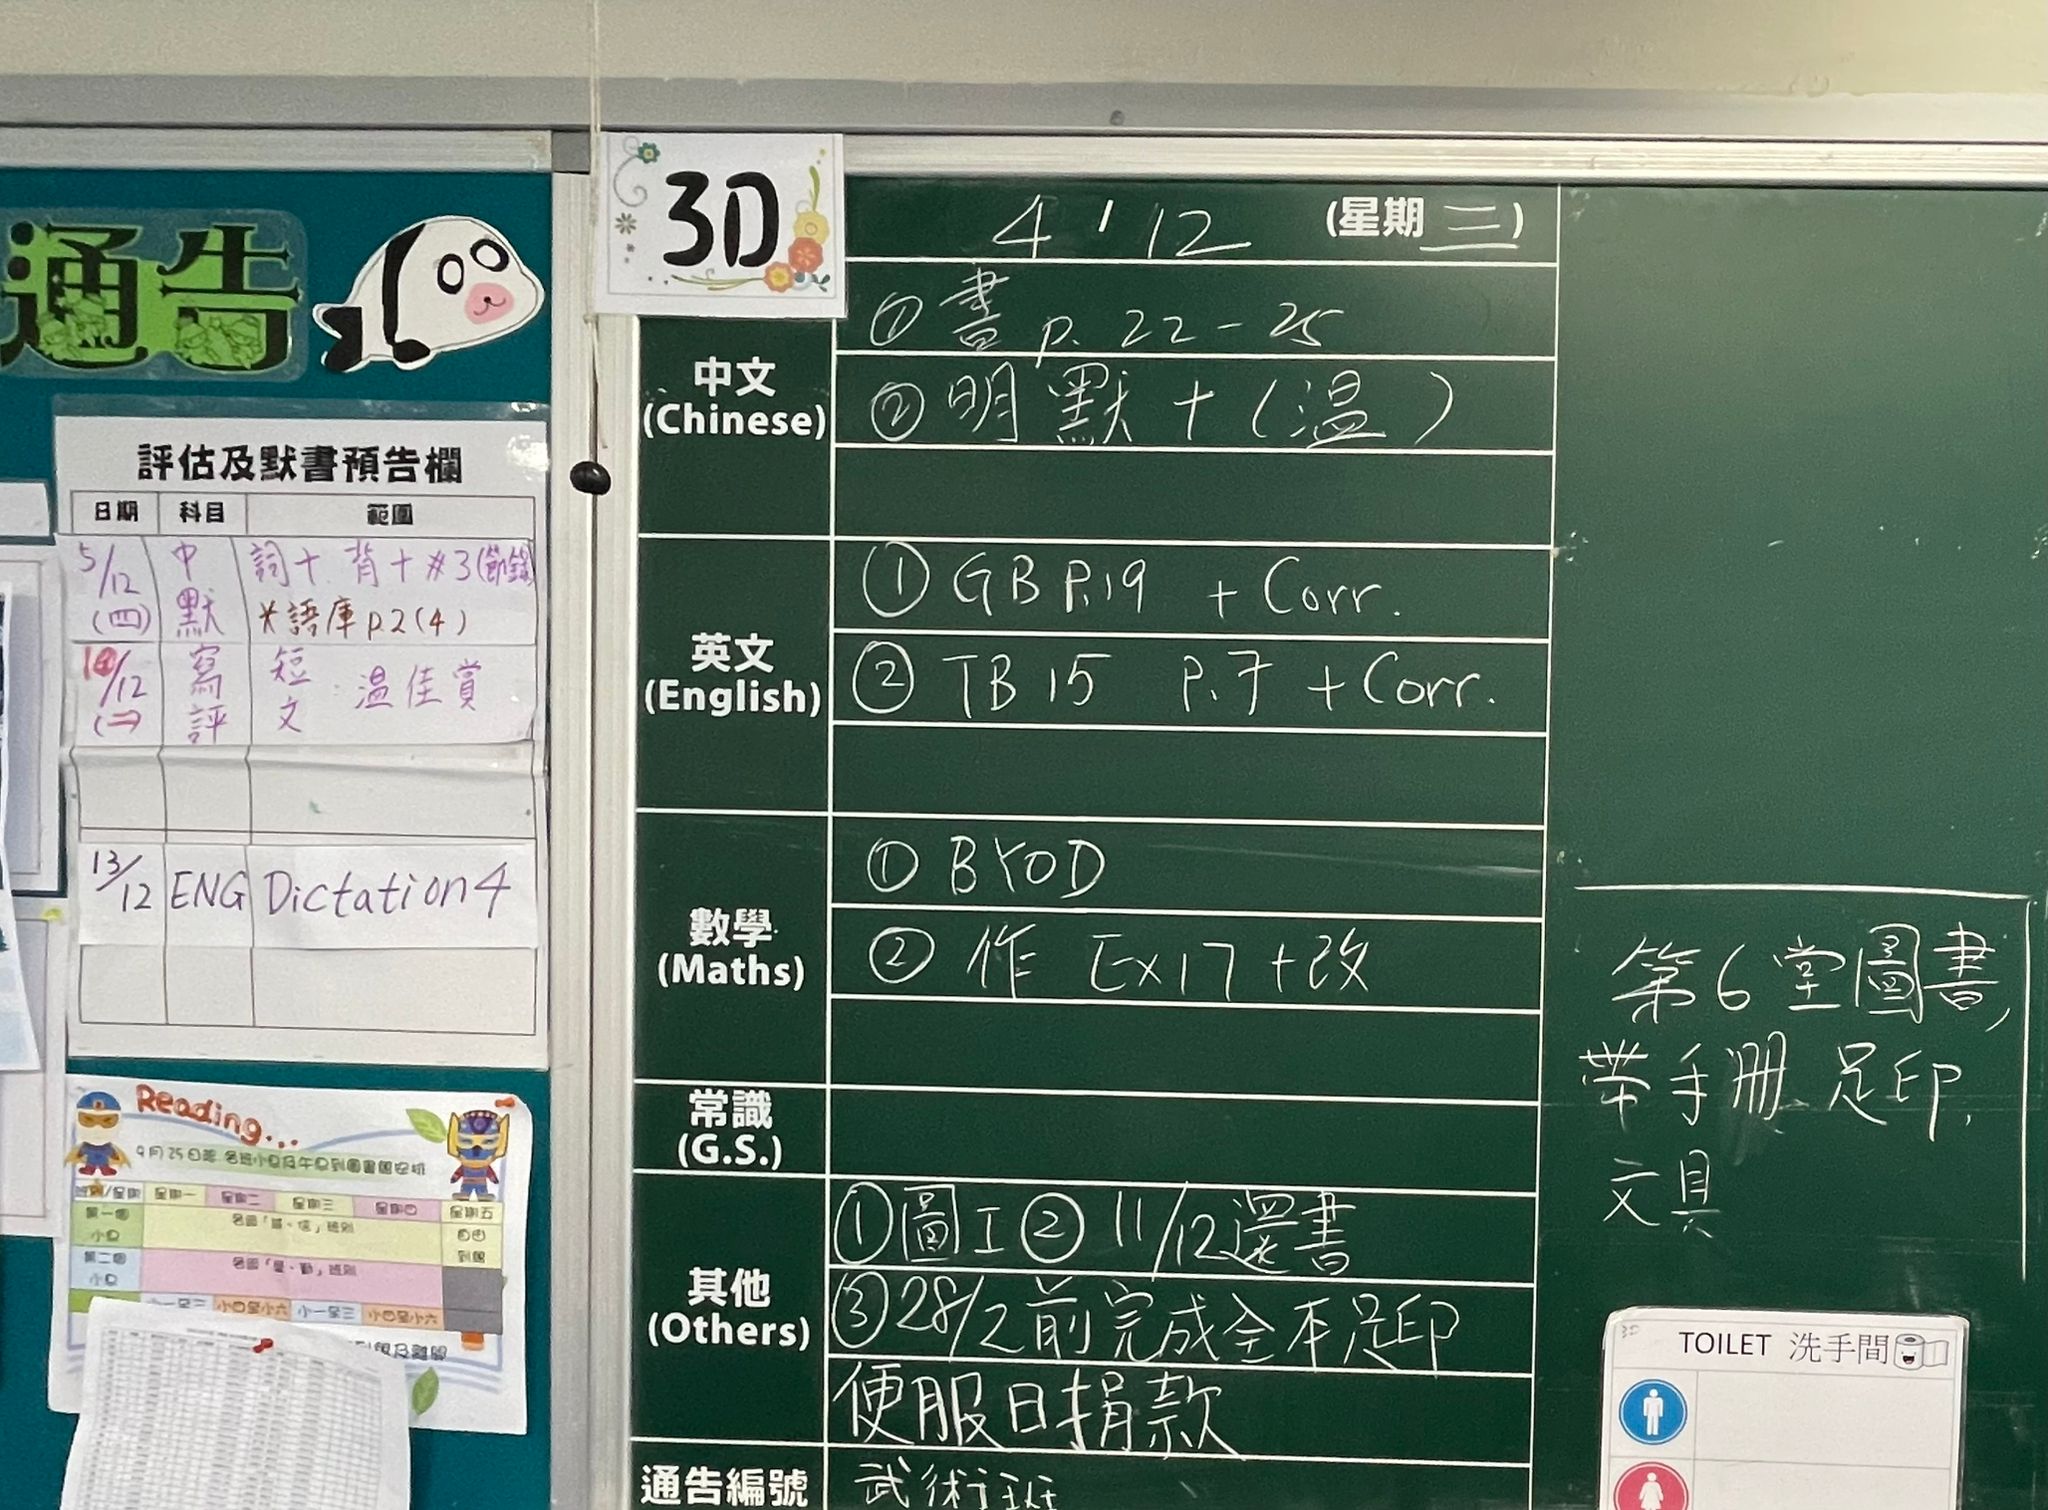 通告
評估及默書預告欄
日期 科目 範圍
5/12 (四) 中默 詞+背+#3(節錄)
*語庫 p.2(4)
10/12 (二) 寫評 短文:溫佳賞
13/12 ENG Dictation 4
Reading...
9月25日起 各班小息及午息到圖書館安排
班別/星期 星期一 星期二 星期三 星期四 星期五
第一個小息 自由到館
第二個小息
小一至三 小四至小六 小一至三 小四至小六
3D
4 / 12 (星期三)
中文 (Chinese)
① 書 p. 22-25
② 明默+(温)
英文 (English)
① GB P.19 + Corr.
② TB 15 P.7 + Corr.
數學 (Maths)
① BYOD
② 作 Ex17+改
常識 (G.S.)
其他 (Others)
①圖工 ② 11/12還書
③28/2前完成全本足印
便服日捐款
通告編號
武術班
第6堂圖書,
帶手冊 足印,
文具
3D
TOILET 洗手間